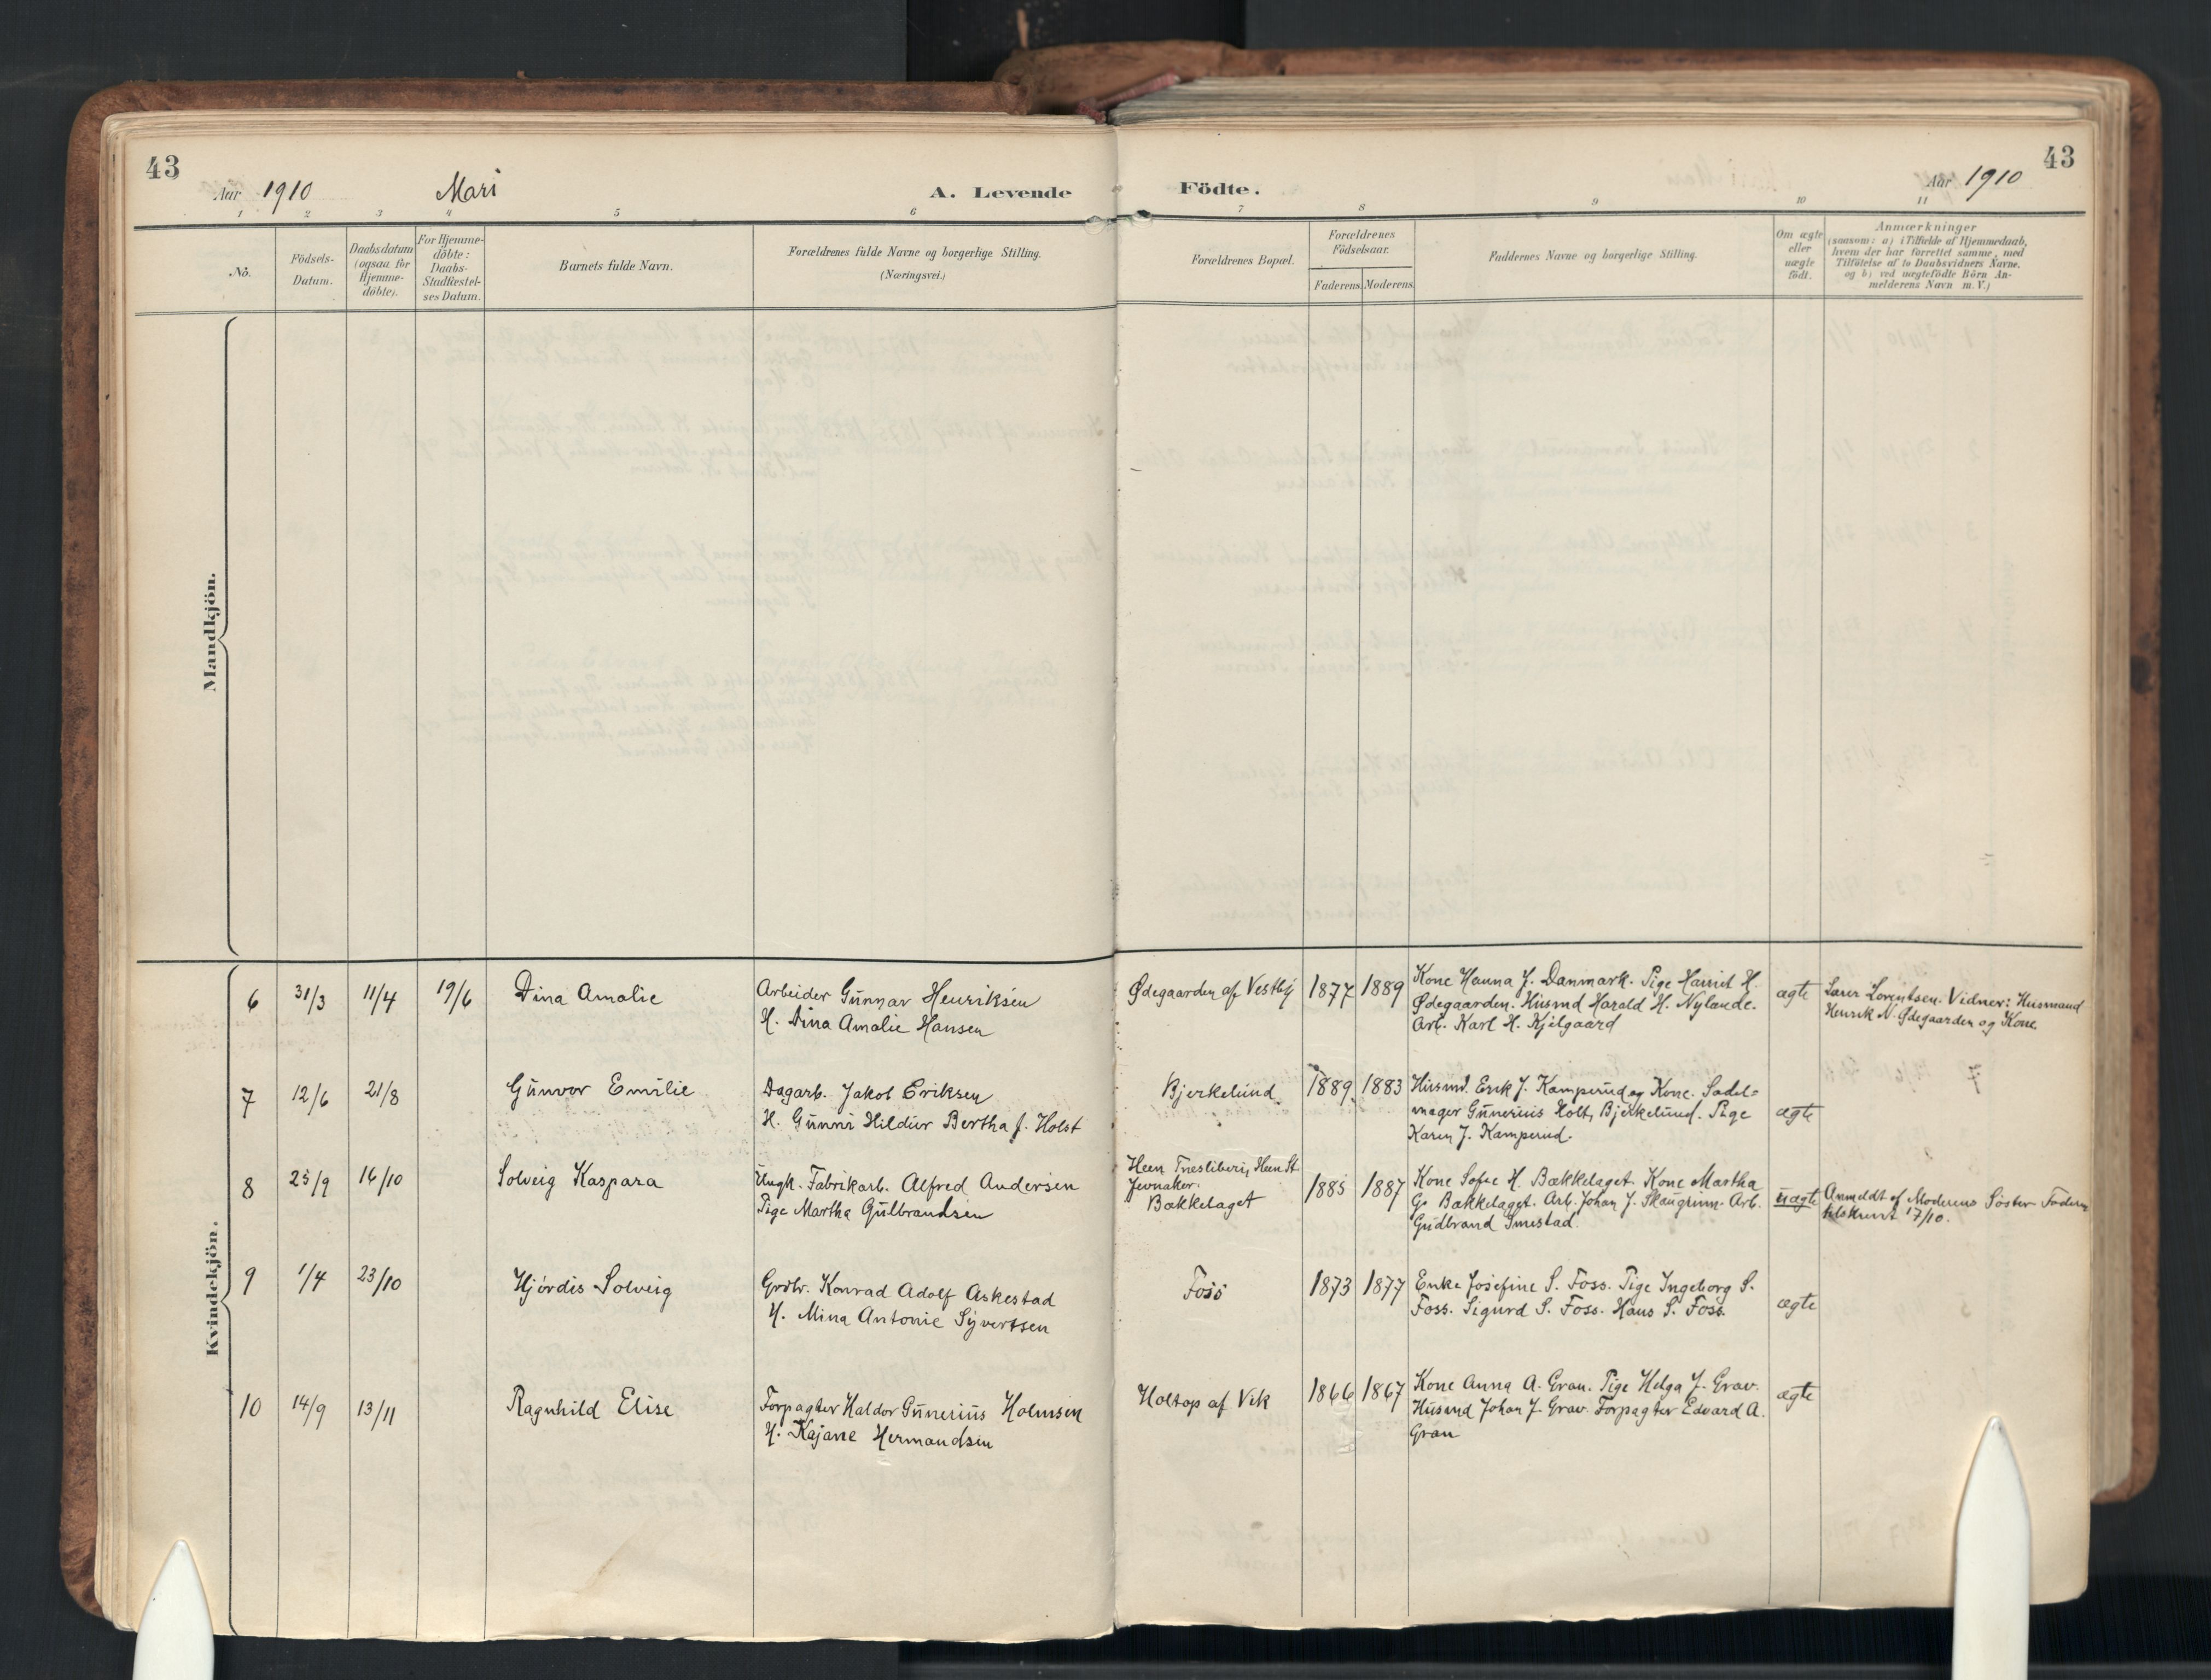 43
43
Aar 1910
Mari
A. Levende
Födte.
Aar 1910
1 2 3 4 5 6 7 8 9 10 11
No.
Födsels-
Datum.
Daabsdatum
(ogsaa for
Hjemme-
döbte).
For Hjemme-
döbte:
Daabs-
Stadfæstel-
ses Datum.
Barnets fulde Navn.
Forældrenes fulde Navne og borgerlige Stilling.
(Næringsvei.)
Forældrenes Bopæl.
Forældrenes
Födselsaar.
Faderens.
Moderens.
Faddernes Navne og borgerlige Stilling.
Om ægte
eller
uægte
födt.
Anmærkninger
(saasom: a) i Tilfælde af Hjemmedaab,
hvem der har forrettet samme, med
Tilföielse af to Daabsvidners Navne.
og b) ved uægtefödte Börn An-
melderens Navn m. V.)
Mandkjön.
Kvindekjön.
6 31/3 11/4 19/6 Dina Amalie
Arbeider Gunnar Henriksen
H. Dina Amalie Hansen
Ødegaarden af Vestby 1877 1889
Kone Hanna J. Danmark. Pige Harriet H.
Ødegaarden. Husmd Harald H. Nylande.
Arb. Karl H. Kjelgaard
ægte
Lærer Lorentsen. Vidner: Husmand
Henrik N. Ødegaarden og Kone
7 12/6 21/8 Gunvor Emilie
Dagarb. Jakob Eriksen
H. Gunni Hildur Bertha J. Holst
Bjerkelund. 1889. 1883
Husmd. Erik J. Kamperud og Kone. Sadel-
mager Gunerius Holt, Bjerkelund. Pige
Karen J. Kamperud.
ægte
8 25/9 16/10 Solveig Kaspara
Ungk. Fabrikarb. Alfred Andersen
Pige Martha Gulbrandsen
Heen Træsliberi, Heen St
Jevnaker.
Bakkelaget
1885 1887
Kone Sofie H. Bakkelaget. Kone Martha
G. Bakkelaget. Arb. Johan J. Skaugrinn. Arb.
Gudbrand Smestad
uægte
Anmeldt af Moderens Søster Faderen
tilskrevet 17/10.
9 1/4 23/10 Hjördis Solveig
Grdbr. Konrad Adolf Askestad
H. Mina Antonie Syvertsen
Foss 1873 1877
Enke Josefine S. Foss. Pige Ingeborg S.
Foss. Sigurd S. Foss. Hans S. Foss.
ægte
10 14/9 13/11 Ragnhild Elise
Forpagter Haldor Gunerius Holmsen
H. Kajane Hermandsen
Holtop af Vik 1866 1867
Kone Anna A. Grau. Pige Helga J. Grav.
Husmd Johan J. Grav. Forpagter Edvard A.
Grau
ægte